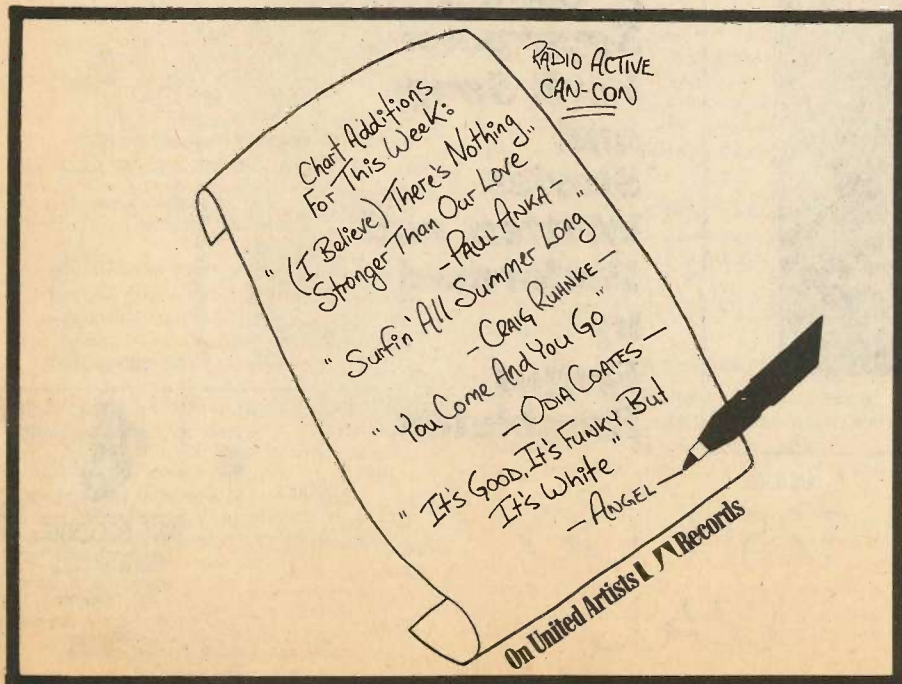 RADIO ACTIVE
CAN-CON
Chart Additions
For This Week:
"(I Believe) There's Nothing
Stronger Than Our Love"
- PAUL ANKA -
"Surfin' All Summer Long"
- CRAIG RUHNKE -
"You Come And You Go"
- ODIA COATES -
"It's GOOD, It's FUNKY, But
It's White"
- ANGEL -
On United Artists UA Records